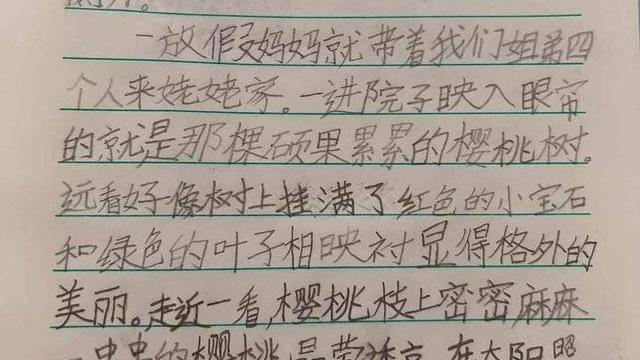 一放假妈妈就带着我们姐弟四
个人来姥姥家。一进院子映入眼帘
的就是那棵硕果累累的樱桃树。
远看好像树上挂满了红色的小宝石
和绿色的叶子相映衬显得格外的
美丽。走近一看,樱桃枝上密密麻麻
的樱桃晶